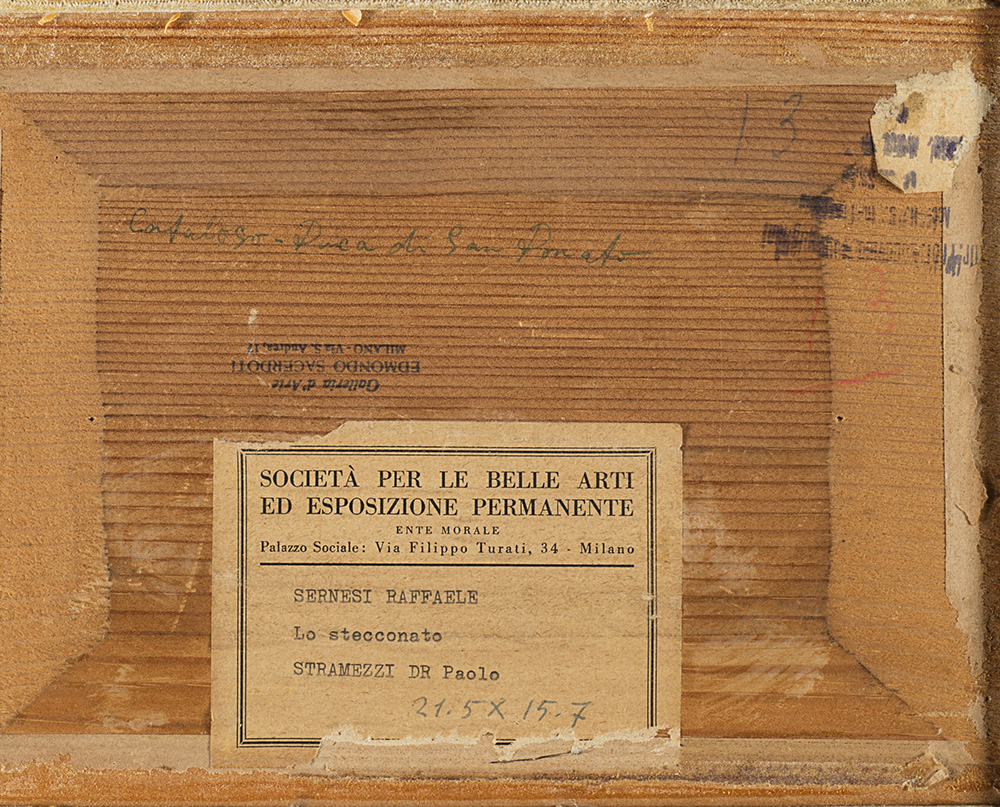 13
Catalogo - Duca di San Donato
Galleria d'Arte
EDMONDO SACERDOTI
MILANO - Via S. Andrea, 17
SOCIETÀ PER LE BELLE ARTI
ED ESPOSIZIONE PERMANENTE
ENTE MORALE
Palazzo Sociale: Via Filippo Turati, 34 - Milano
SERNESI RAFFAELE
Lo stecconato
STRAMEZZI DR Paolo
21.5 X 15.7